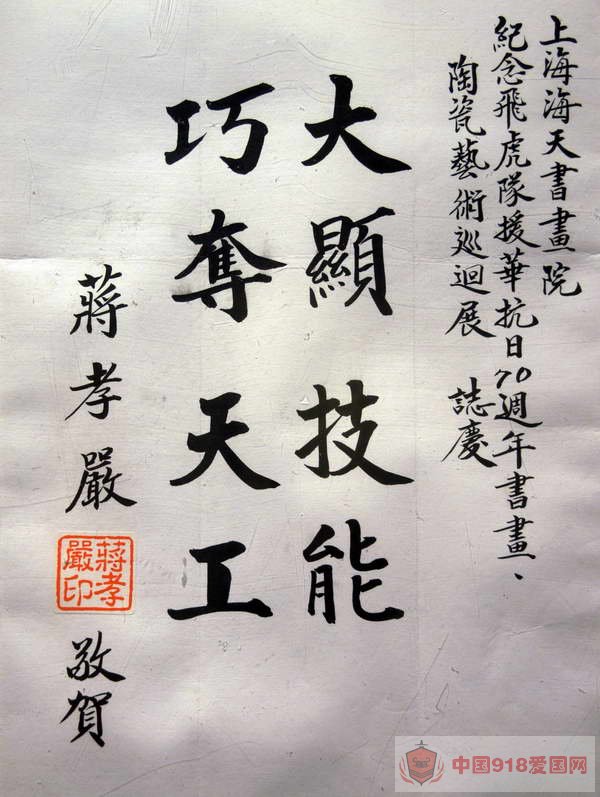 上海海天書畫院
紀念飛虎隊援華抗日70週年書畫、
陶瓷藝術巡迴展 誌慶
大顯技能
巧奪天工
蔣孝嚴
蔣孝
嚴印
敬賀
中国918爱国网